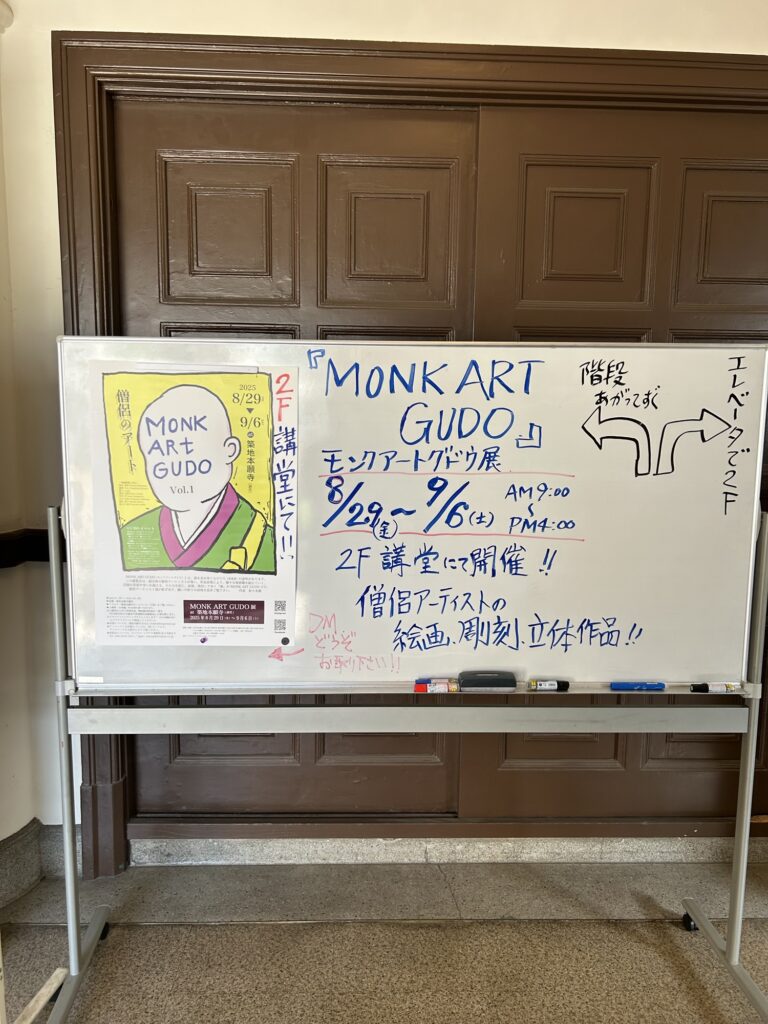 僧侶のアート
2025
8/29
▼
9/6
築地本願寺
MONK
ART
GUDO
Vol.1
MONK ART GUDO展
at 築地本願寺
2025年8月29日
2F 講堂にて!!
『MONK ART
GUDO』
モンクアートグドウ展
8/29(金)～9/6(土) AM9:00
～
PM4:00
2F 講堂にて開催!!
僧侶アーティストの
絵画、彫刻、立体作品!!
階段
あがってすぐ
エレベータで2F
DM
どうぞ
お取り下さい!!